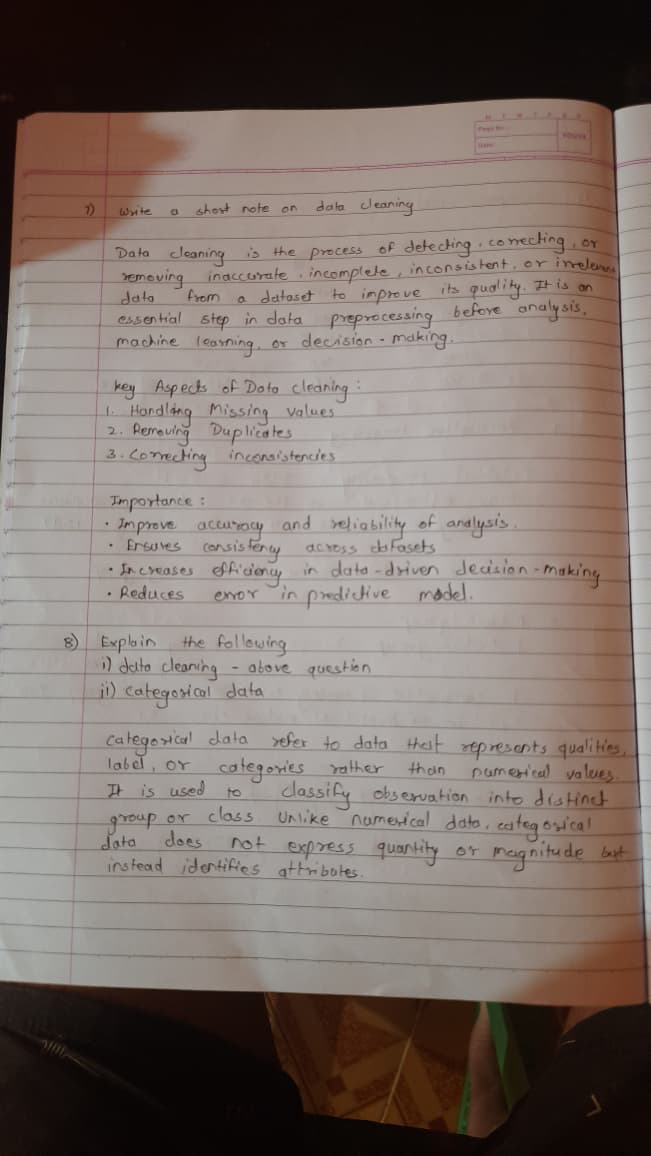 M T W T F S S
Page No.:
Date:
YOUVA
7) Write a short note on data cleaning
Data cleaning is the process of detecting, correcting, or
removing inaccurate, incomplete, inconsistent, or irrelevant
data from a dataset to improve its quality. It is an
essential step in data preprocessing before analysis,
machine learning, or decision-making.
key Aspects of Data cleaning:
1. Handling Missing values
2. Removing Duplicates
3. Correcting inconsistencies
Importance:
• Improve accuracy and reliability of analysis.
• Ensures consistency across datasets
• Increases efficiency in data-driven decision-making
• Reduces error in predictive model.
8) Explain the following
i) data cleaning - above question
ii) categorical data
categorical data refer to data that represents qualities,
label, or categories rather than numerical values.
It is used to classify observation into distinct
group or class Unlike numerical data, categorical
data does not express quantity or magnitude but
instead identifies attributes.